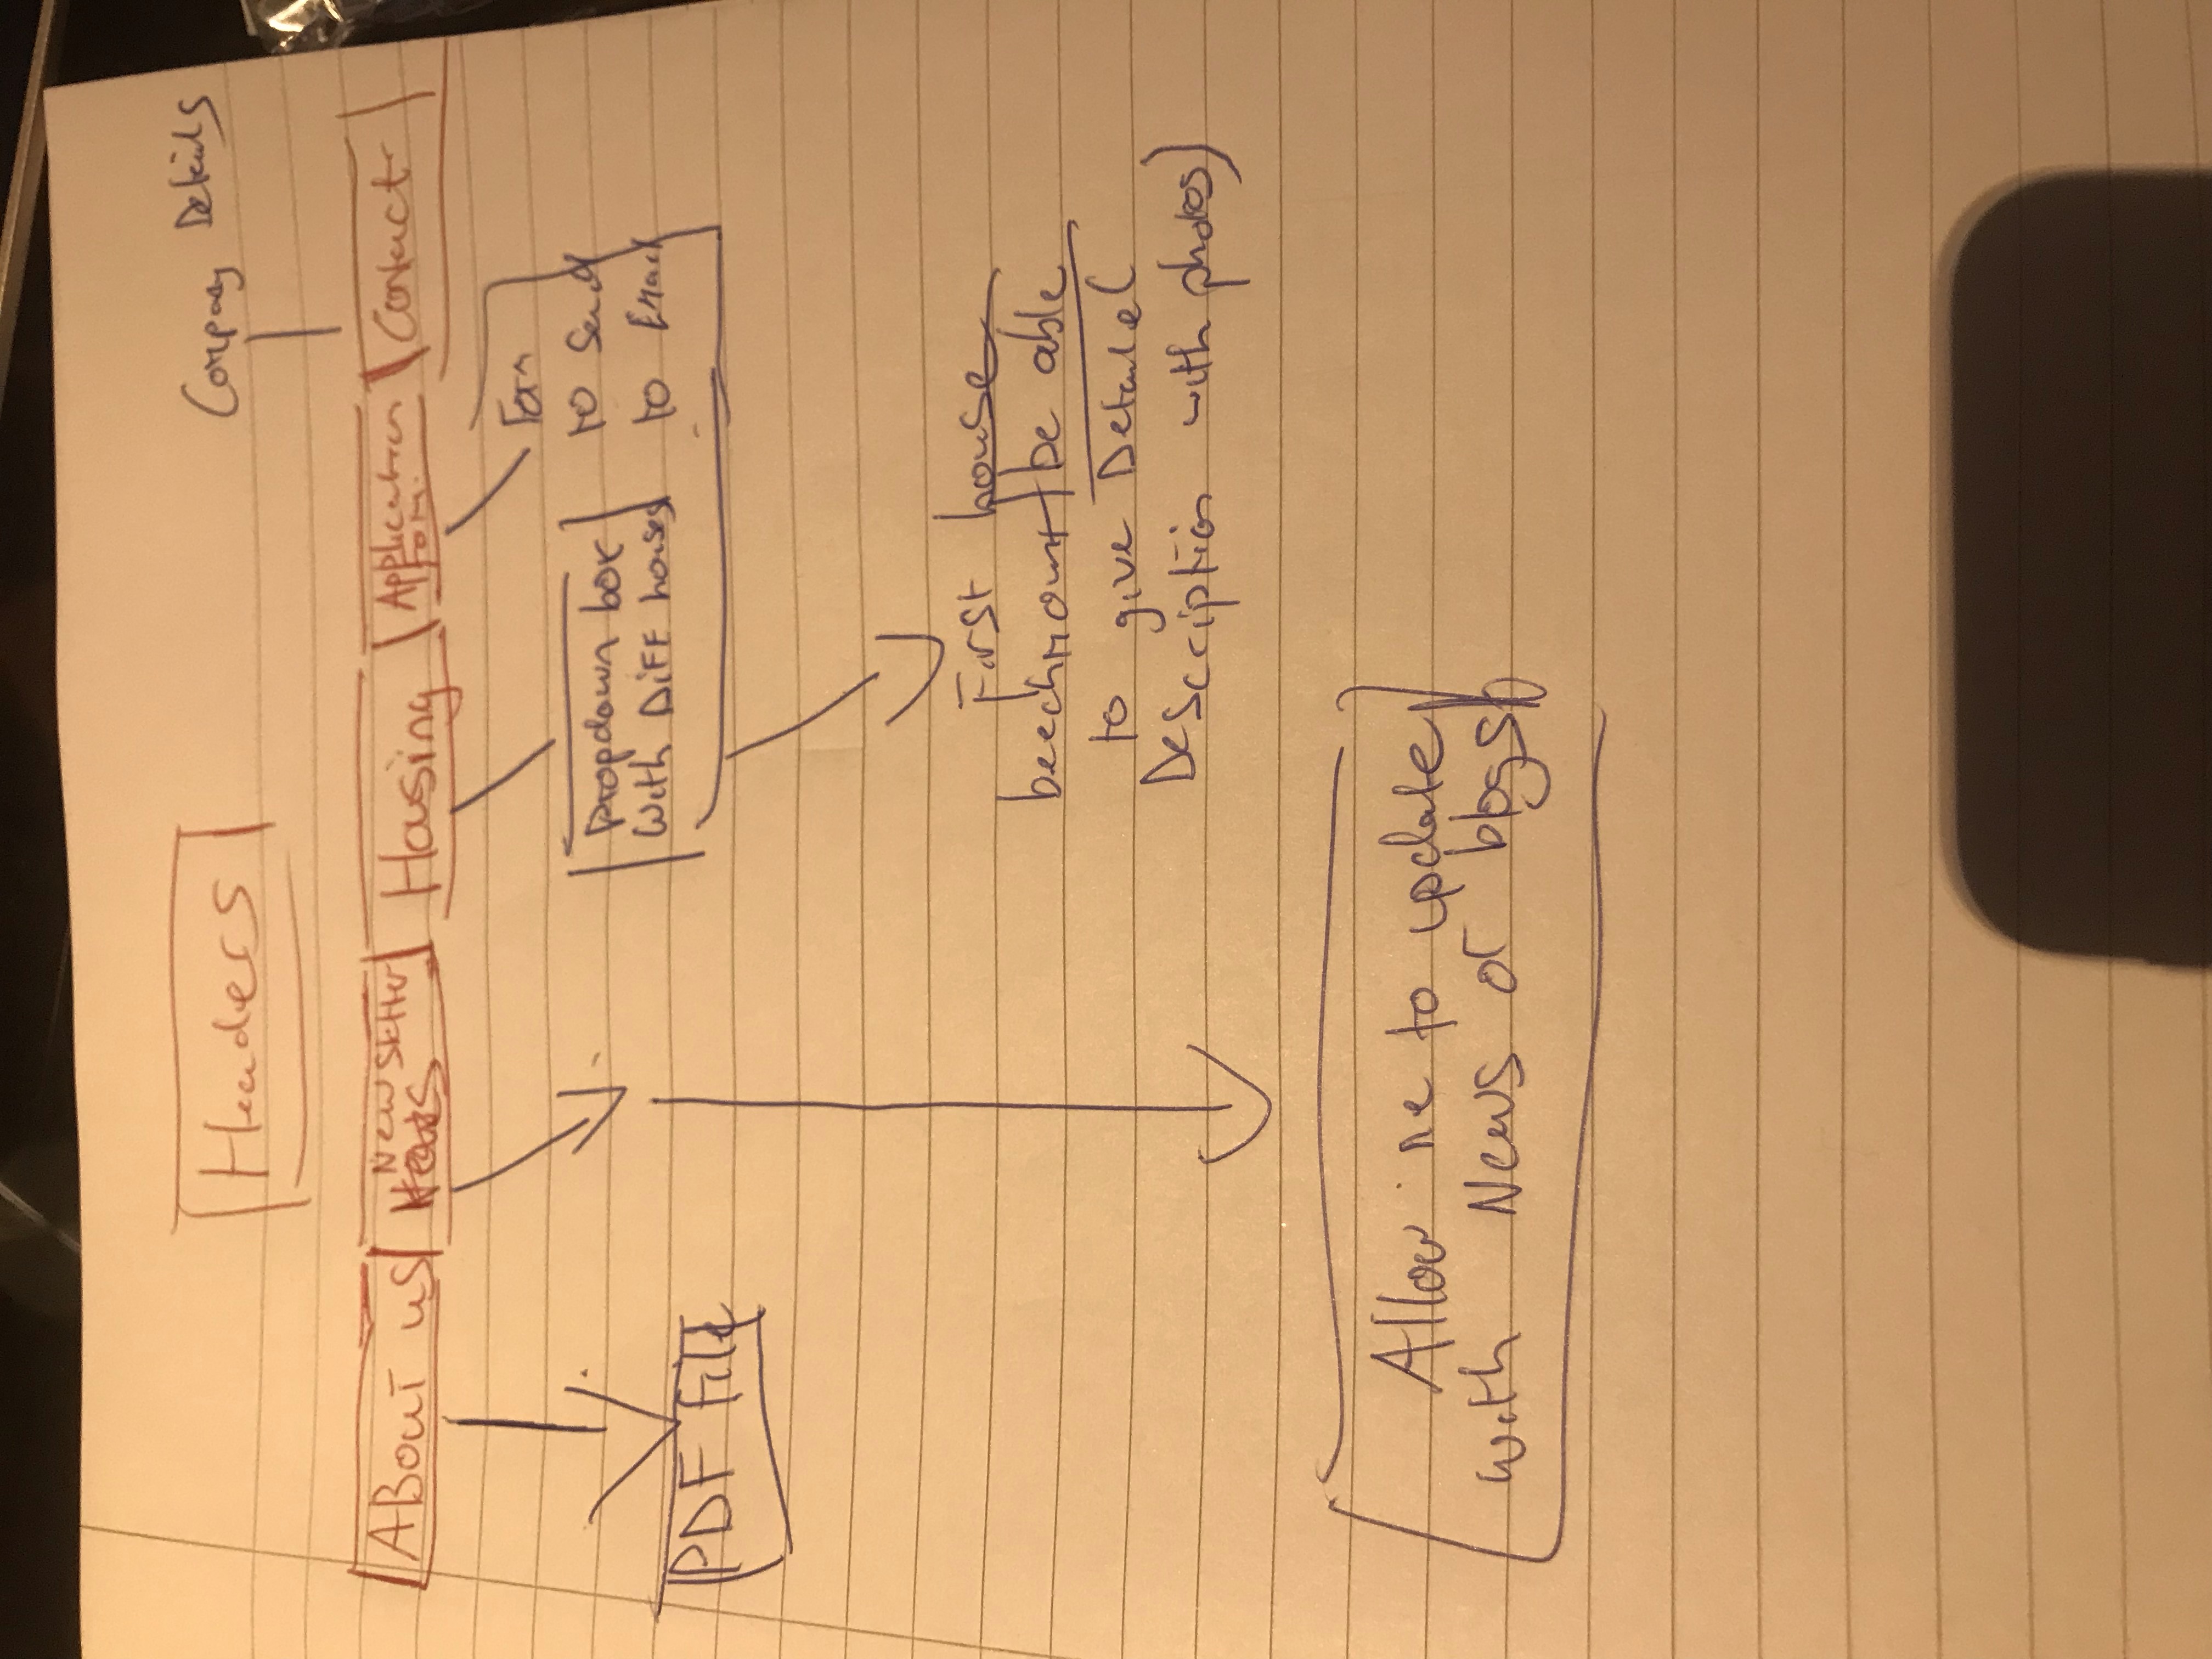 Headers
Company Details
ABout us
Newsletter
Housing
Application
Form
Contact
Form
to Send
to Email
Dropdown box
with Diff houses
PDF File
First house
beechmount be able
to give Detailed
Description with photos)
Allow me to update
with News or blogs